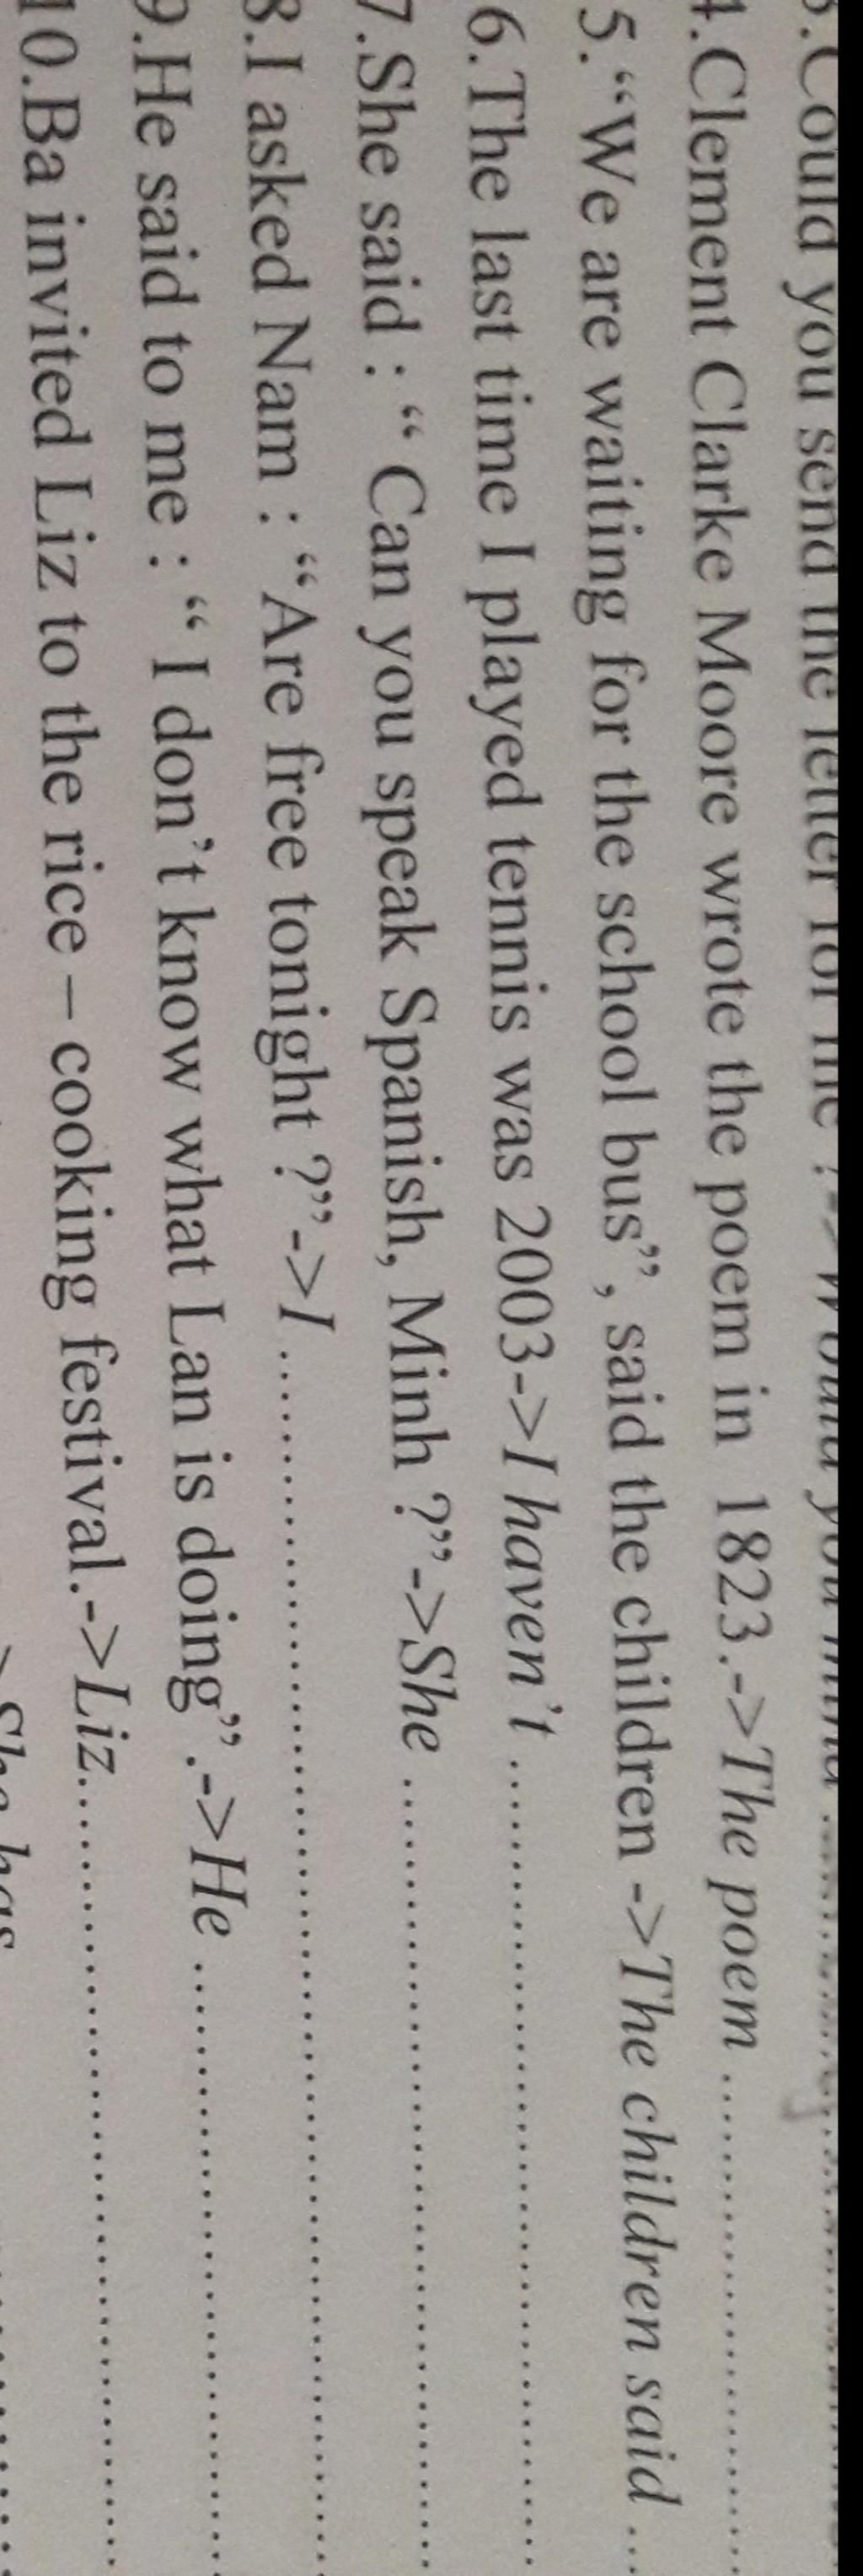 3.Could you send the letter for me ?->Would you mind ................
4.Clement Clarke Moore wrote the poem in 1823.->The poem ................................
5.“We are waiting for the school bus”, said the children ->The children said ...
6.The last time I played tennis was 2003->I haven’t ................................................
7.She said : “ Can you speak Spanish, Minh ?”->She ................................................
8.I asked Nam : “Are free tonight ?”->I ................................................................
9.He said to me : “ I don’t know what Lan is doing” .->He ........................................
10.Ba invited Liz to the rice – cooking festival.->Liz................................................
->She has